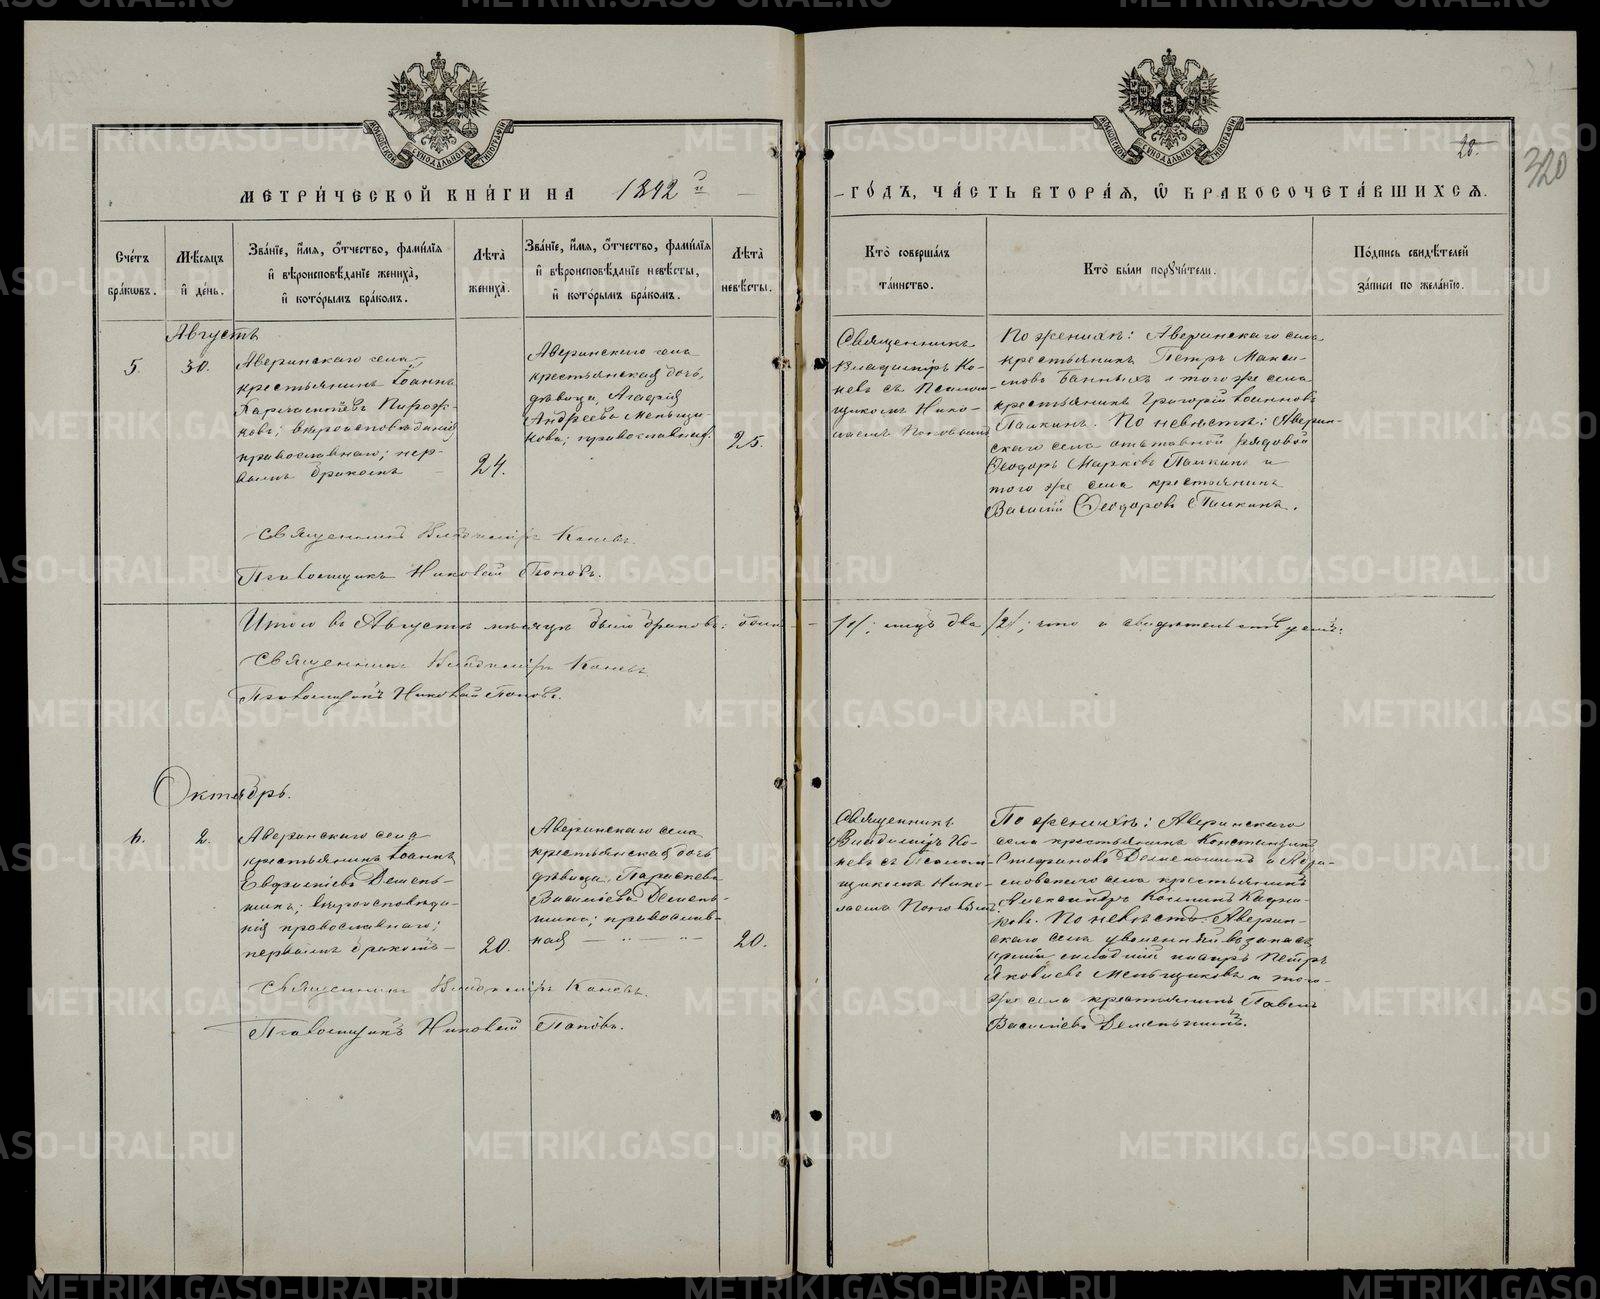 МЕТРИ́ЧЕСКОЙ КНИ́ГИ НА 1892 й
– ГО́ДЪ, ЧА́СТЬ ВТОРА́Я, Ѡ БРАКОСОЧЕТА́ВШИХСЯ.
28.
320
МОСКОВСКОЙ СѴНОДАЛЬНОЙ ТИПОГРАФІИ
МОСКОВСКОЙ СѴНОДАЛЬНОЙ ТИПОГРАФІИ
Сче́тъ
бра́кѡвъ.
Мѣ́сяцъ
и҆ де́нь.
Зва́нїе, и҆́мя, ѻ҆́тчество, фамилїѧ
и҆ вѣроисповѣ́данїе жениха̀,
и҆ кото́рымъ бра́комъ.
Лѣта̀
жениха̀.
Зва́нїе, и҆́мя, ѻ҆́тчество, фамилїѧ
и҆ вѣроисповѣ́данїе невѣ́сты,
и҆ кото́рымъ бра́комъ.
Лѣта̀
невѣ́сты.
Кто̀ соверша́лъ
та́инство.
Кто̀ бы́ли порꙋчи́тели.
По́дпись свидѣ́телей
за́писи по жела́нїю.
Августъ
5.
30.
Аверинскаго села,
крестьянинъ Іоаннъ
Пирож-
ковъ; вѣроисповѣданія
православнаго; пер-
вымъ бракомъ
24.
Аверинскаго села
крестьянская дочь,
дѣвица, Агафія
Андреева Меньщи-
кова; православная.
25.
Священникъ
Владиміръ Ко-
невъ съ Псалом-
щикомъ Нико-
лаемъ Поповымъ
По женихѣ: Аверинскаго села
крестьянинъ Петръ Макси-
мовъ Банныхъ и того же села
крестьянинъ Григорій Іоанновъ
Пашкинъ. По невѣстѣ: Аверин-
скаго села отставной рядовой
Ѳеодоръ Марковъ Пашкинъ и
того же села крестьянинъ
Василій Ѳеодоровъ Пашкинъ.
Священникъ Владиміръ Коневъ.
Псаломщикъ Николай Поповъ.
Итого въ Августѣ мѣсяцѣ было браковъ: одинъ –
/1/; лицъ два /2/; что и свидѣтельствуемъ:
Священникъ Владиміръ Коневъ
Псаломщикъ Николай Поповъ.
Октябрь.
6.
2.
Аверинскаго села
крестьянинъ Іоаннъ
Деменъ-
шинъ; вѣроисповѣда-
нія православнаго;
первымъ бракомъ –
20.
Аверинскаго села
крестьянская дочь
дѣвица, Параскева
Василіева Деменъ-
шина; православ-
ная
20.
Священникъ
Владиміръ Ко-
невъ съ Псалом-
щикомъ Нико-
лаемъ Поповымъ
По женихѣ: Аверинскаго
села крестьянинъ Константинъ
Стефановъ Деменьшинъ и
села крестьянинъ
Александръ
По невѣстѣ: Аверин-
скаго села уволенный въ запасъ
арміи младшій писарь Петръ
Яковлевъ Меньщиковъ и того-
же села крестьянинъ Павелъ
Василіевъ Деменьшинъ.
Священникъ Владиміръ Коневъ.
Псаломщикъ Николай Поповъ.
METRIKI.GASO-URAL.RU